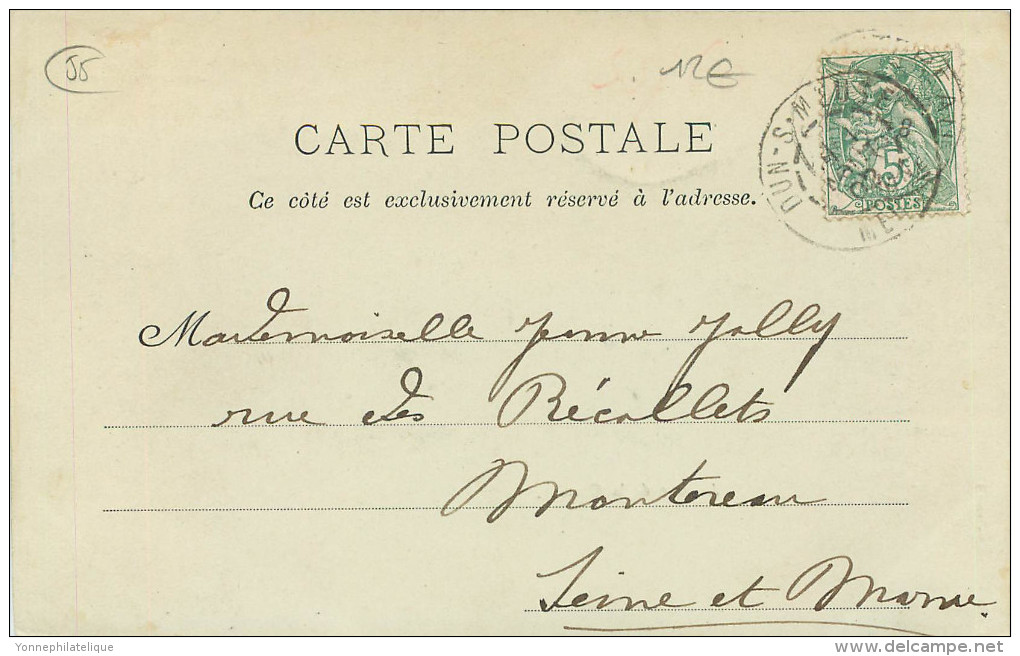 55
12€
CARTE POSTALE
Ce côté est exclusivement réservé à l'adresse.
DUN-S-MEUSE
5
POSTES
Mademoiselle Jeanne Jolly
rue des Récollets
Montereau
Seine et Marne
Yonnephilatelique
delcampe.net